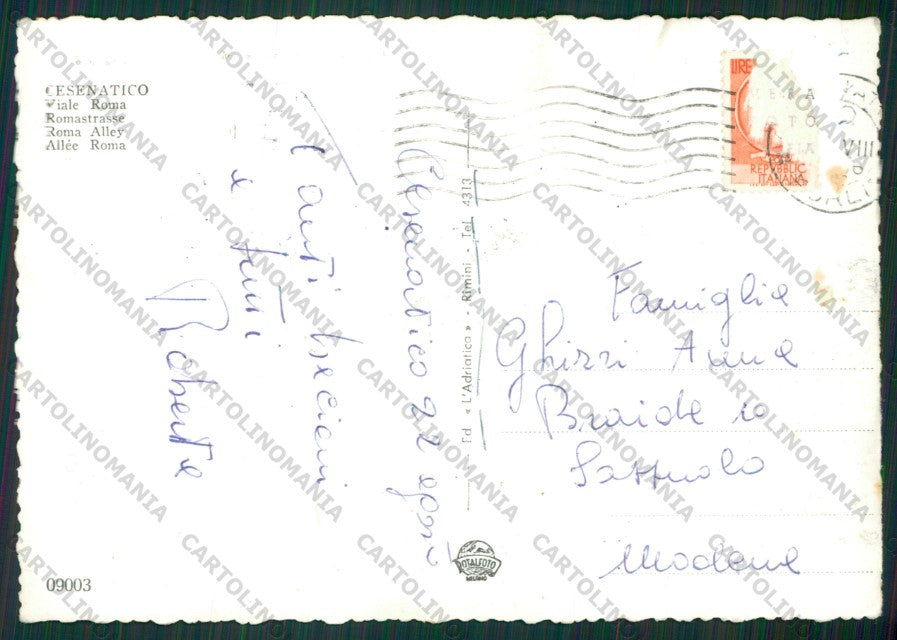 CESENATICO
Viale Roma
Romastrasse
Roma Alley
Allée Roma
Cesenatico 22
Tanti bacioni
a tutti
Roberta
Ed « L'Adriatica » - Rimini - Tel 4313
LIRE
REPUBBLIC
ITALIANA
VIII
Famiglia
Ghizzi Anna
Braida 10
Sassuolo
Modena
ROTALFOTO
MILANO
09003
CARTOLINOMANIA